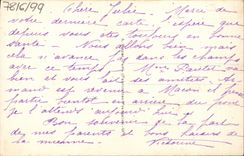 7E16/99
Chère Julie. Merci de
votre dernière carte j'espère que
depuis vous êtes toujours en bonne
santé. Nous allons bien mais
cela n'avance pas dans les champs
avec ce temps. Mme
bien et vous ait des amitiés.
mand est revenu à Macon et
partir bientôt en
je l'attends aujourd'hui
Bon souvenir
de mes parents et bons baisers de
la mienne. Victorine